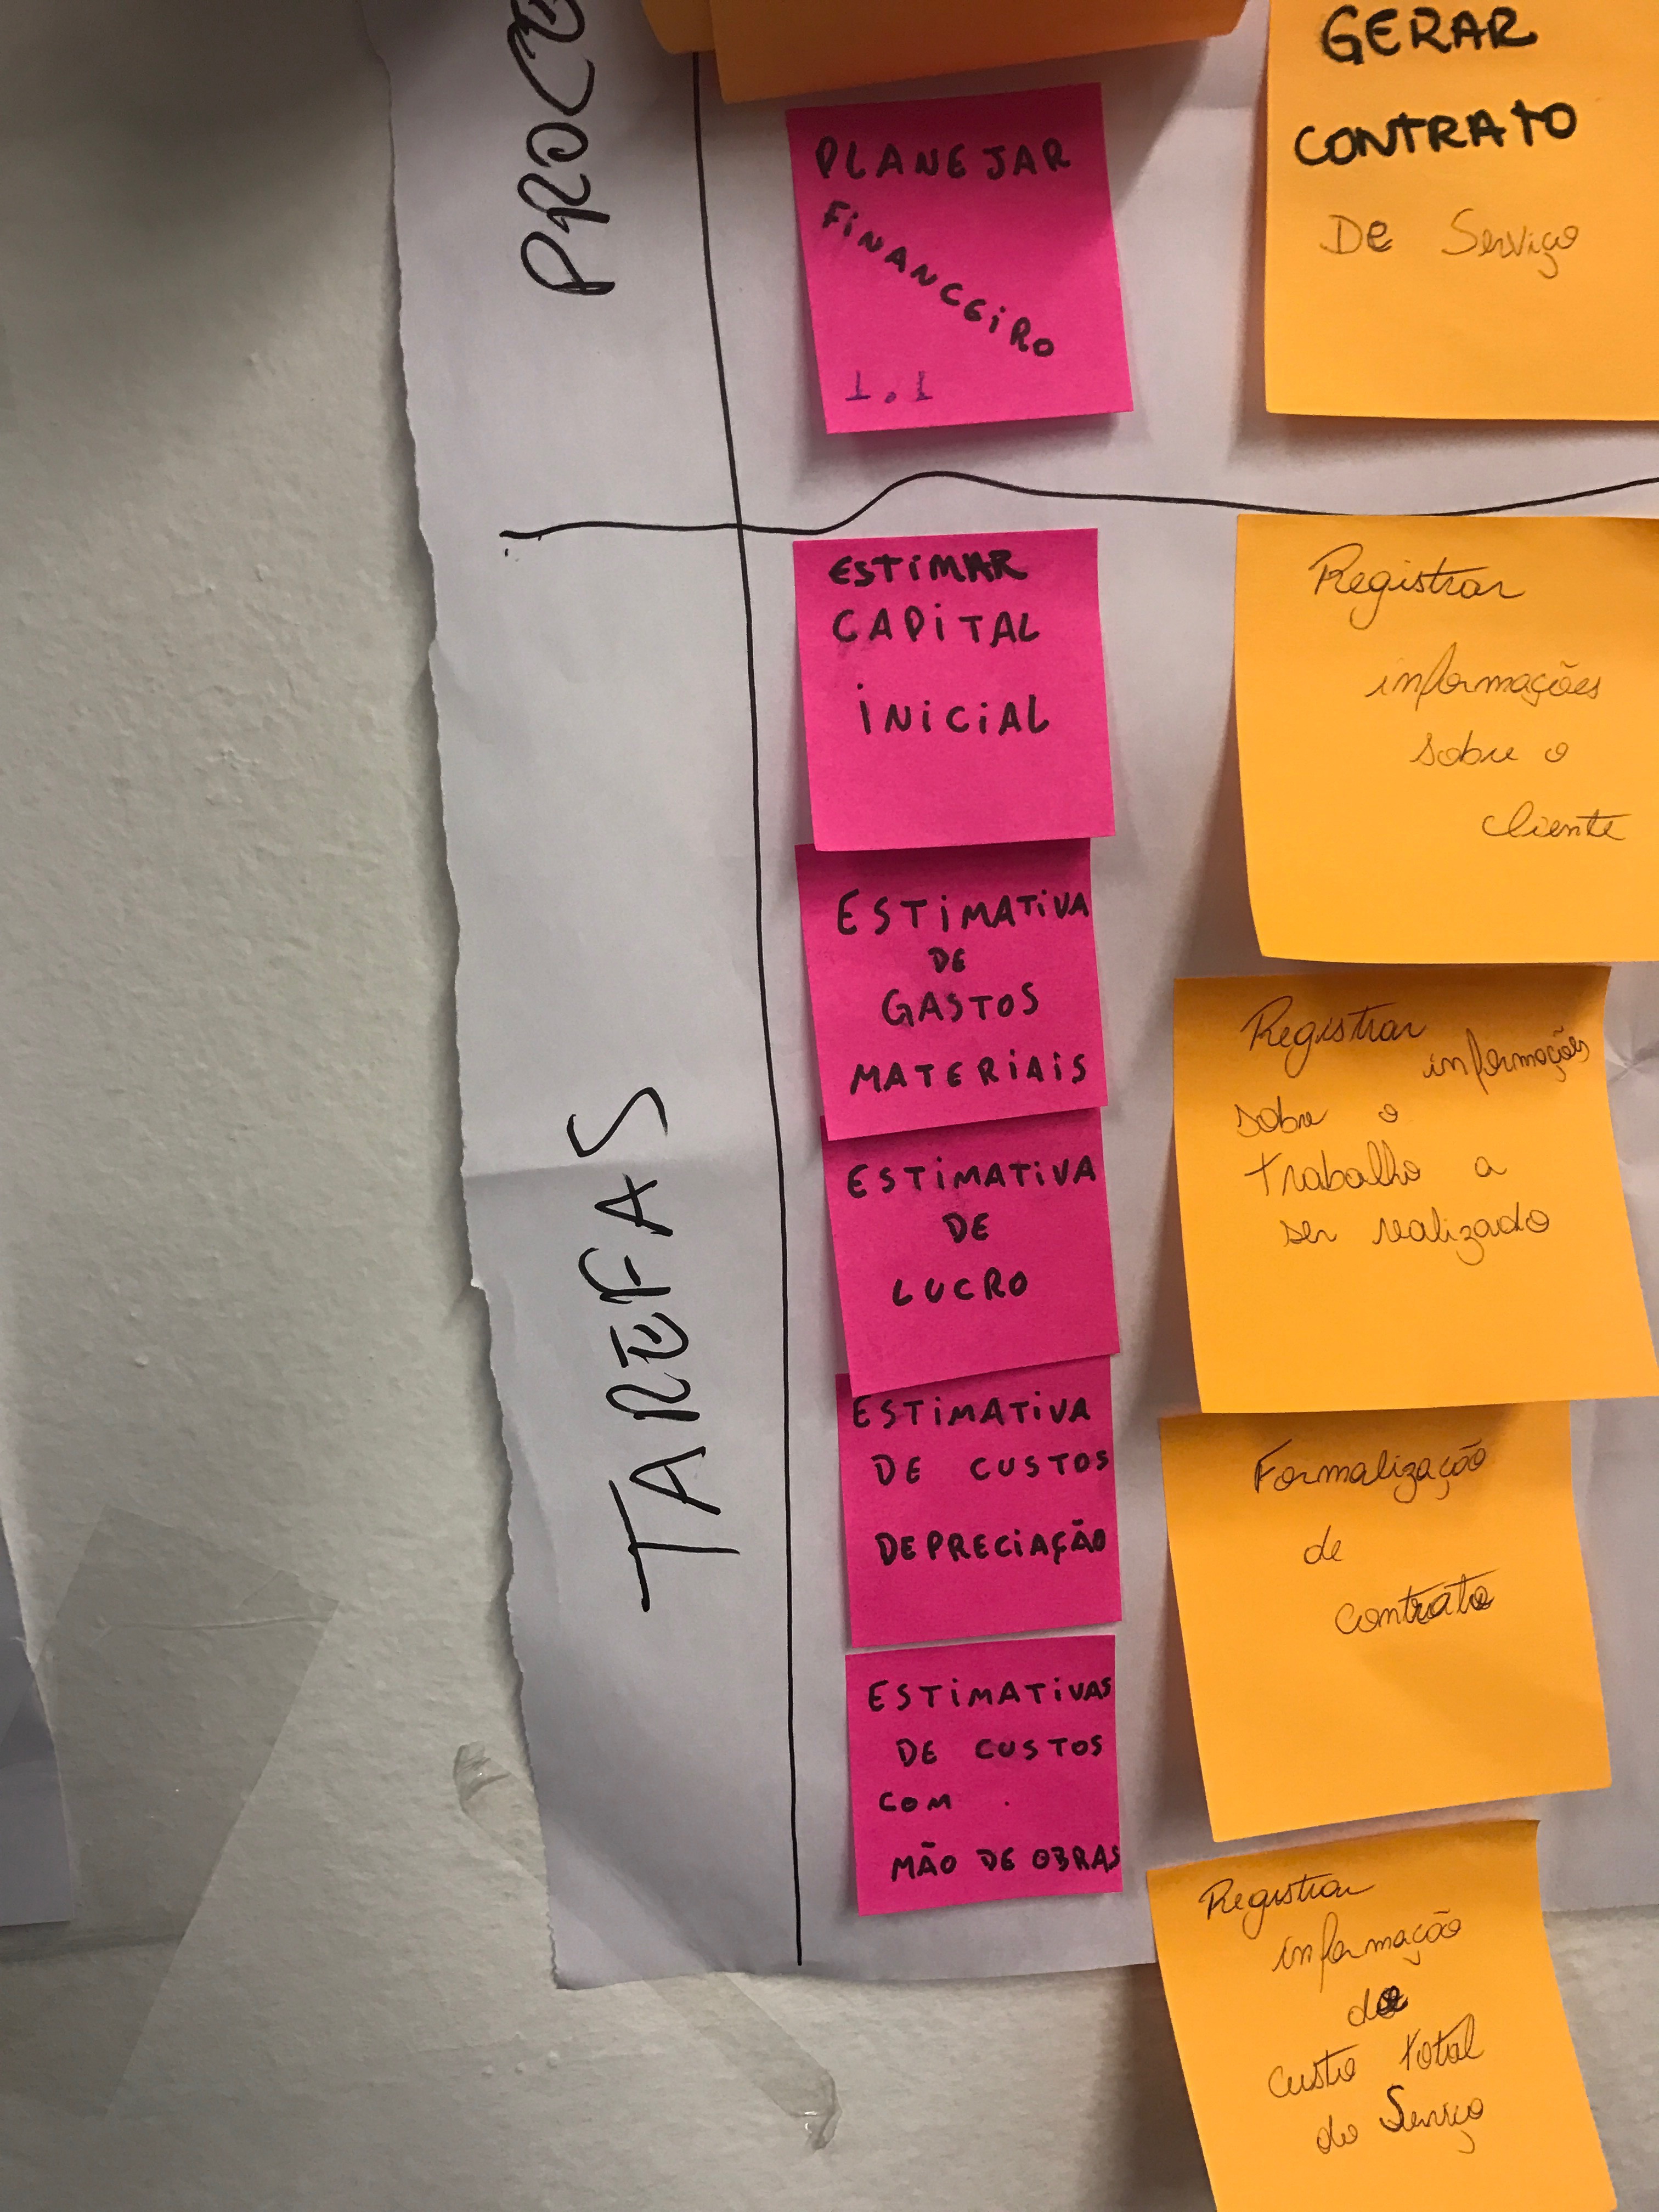 PROCE
PLANEJAR
FINANCEIRO
1.1
GERAR
CONTRATO
De Serviço
TAREFAS
ESTIMAR
CAPITAL
INICIAL
ESTIMATIVA
DE
GASTOS
MATERIAIS
ESTIMATIVA
DE
LUCRO
ESTIMATIVA
DE CUSTOS
DEPRECIAÇÃO
ESTIMATIVAS
DE CUSTOS
COM
MÃO DE OBRAS
Registrar
informações
sobre o
cliente
Registrar informações
sobre o
trabalho a
ser realizado
Formalização
de
contrato
Registrar
informação
do
custo total
do Serviço